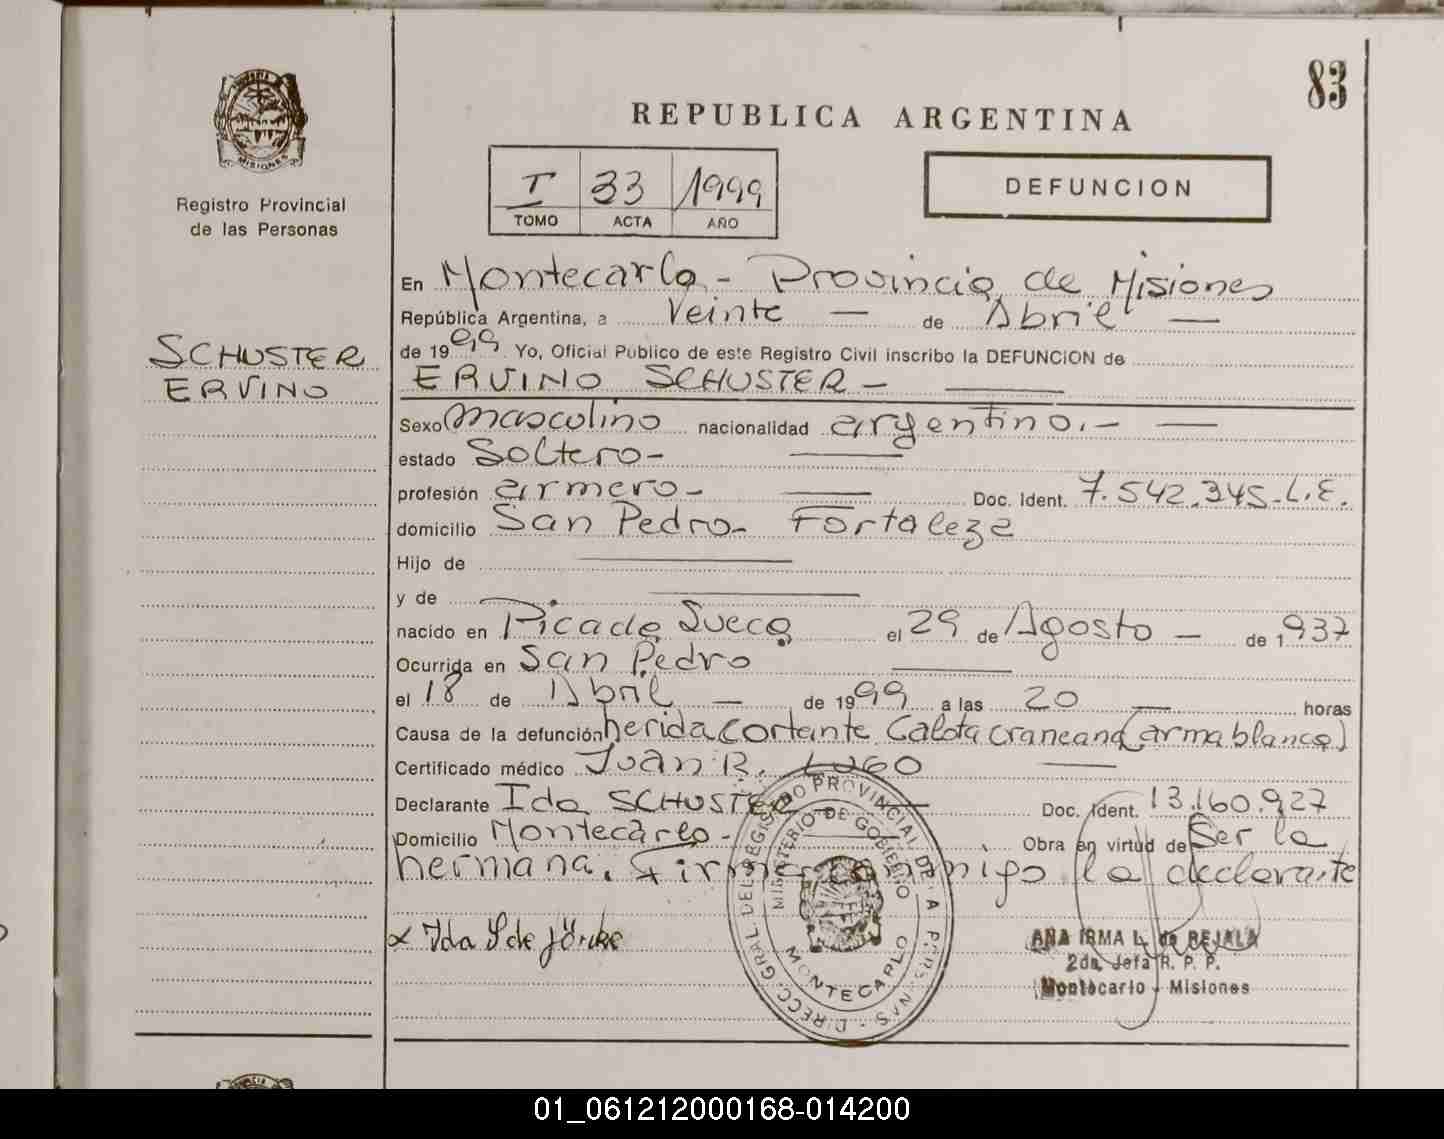 83
MISIONES
REPUBLICA ARGENTINA
I 33 1999
TOMO ACTA AÑO
DEFUNCION
Registro Provincial
de las Personas
SCHUSTER
ERVINO
En Montecarlo - Provincia de Misiones
República Argentina, a Veinte — de Abril —
de 1999. Yo, Oficial Público de este Registro Civil inscribo la DEFUNCION de
ERVINO SCHUSTER - —
Sexo masculino nacionalidad argentino. - —
estado Soltero - —
profesión armero - — Doc. Ident. 7.542.345-L.E.
domicilio San Pedro - Fortaleza
Hijo de —
y de —
nacido en Picada Sueca el 29 de Agosto — de 1937
Ocurrida en San Pedro —
el 18 de Abril — de 1999 a las 20 — horas
Causa de la defunción herida cortante Calota craneana (arma blanca)
Certificado médico Juan R. Lugo —
Declarante Ida SCHUSTER — Doc. Ident. 13.160.927
Domicilio Montecarlo - — Obra en virtud de Ser la
hermana. Firma conmigo la declarante
x Ida S de
DIRECC. GRAL. DEL REGISTRO PROVINCIAL DE LAS PERSONAS
MINISTERIO DE GOBIERNO
MONTECARLO
ANA IRMA L. de BEJALA
2da. Jefa R. P. P.
Montecarlo - Misiones
01_061212000168-014200